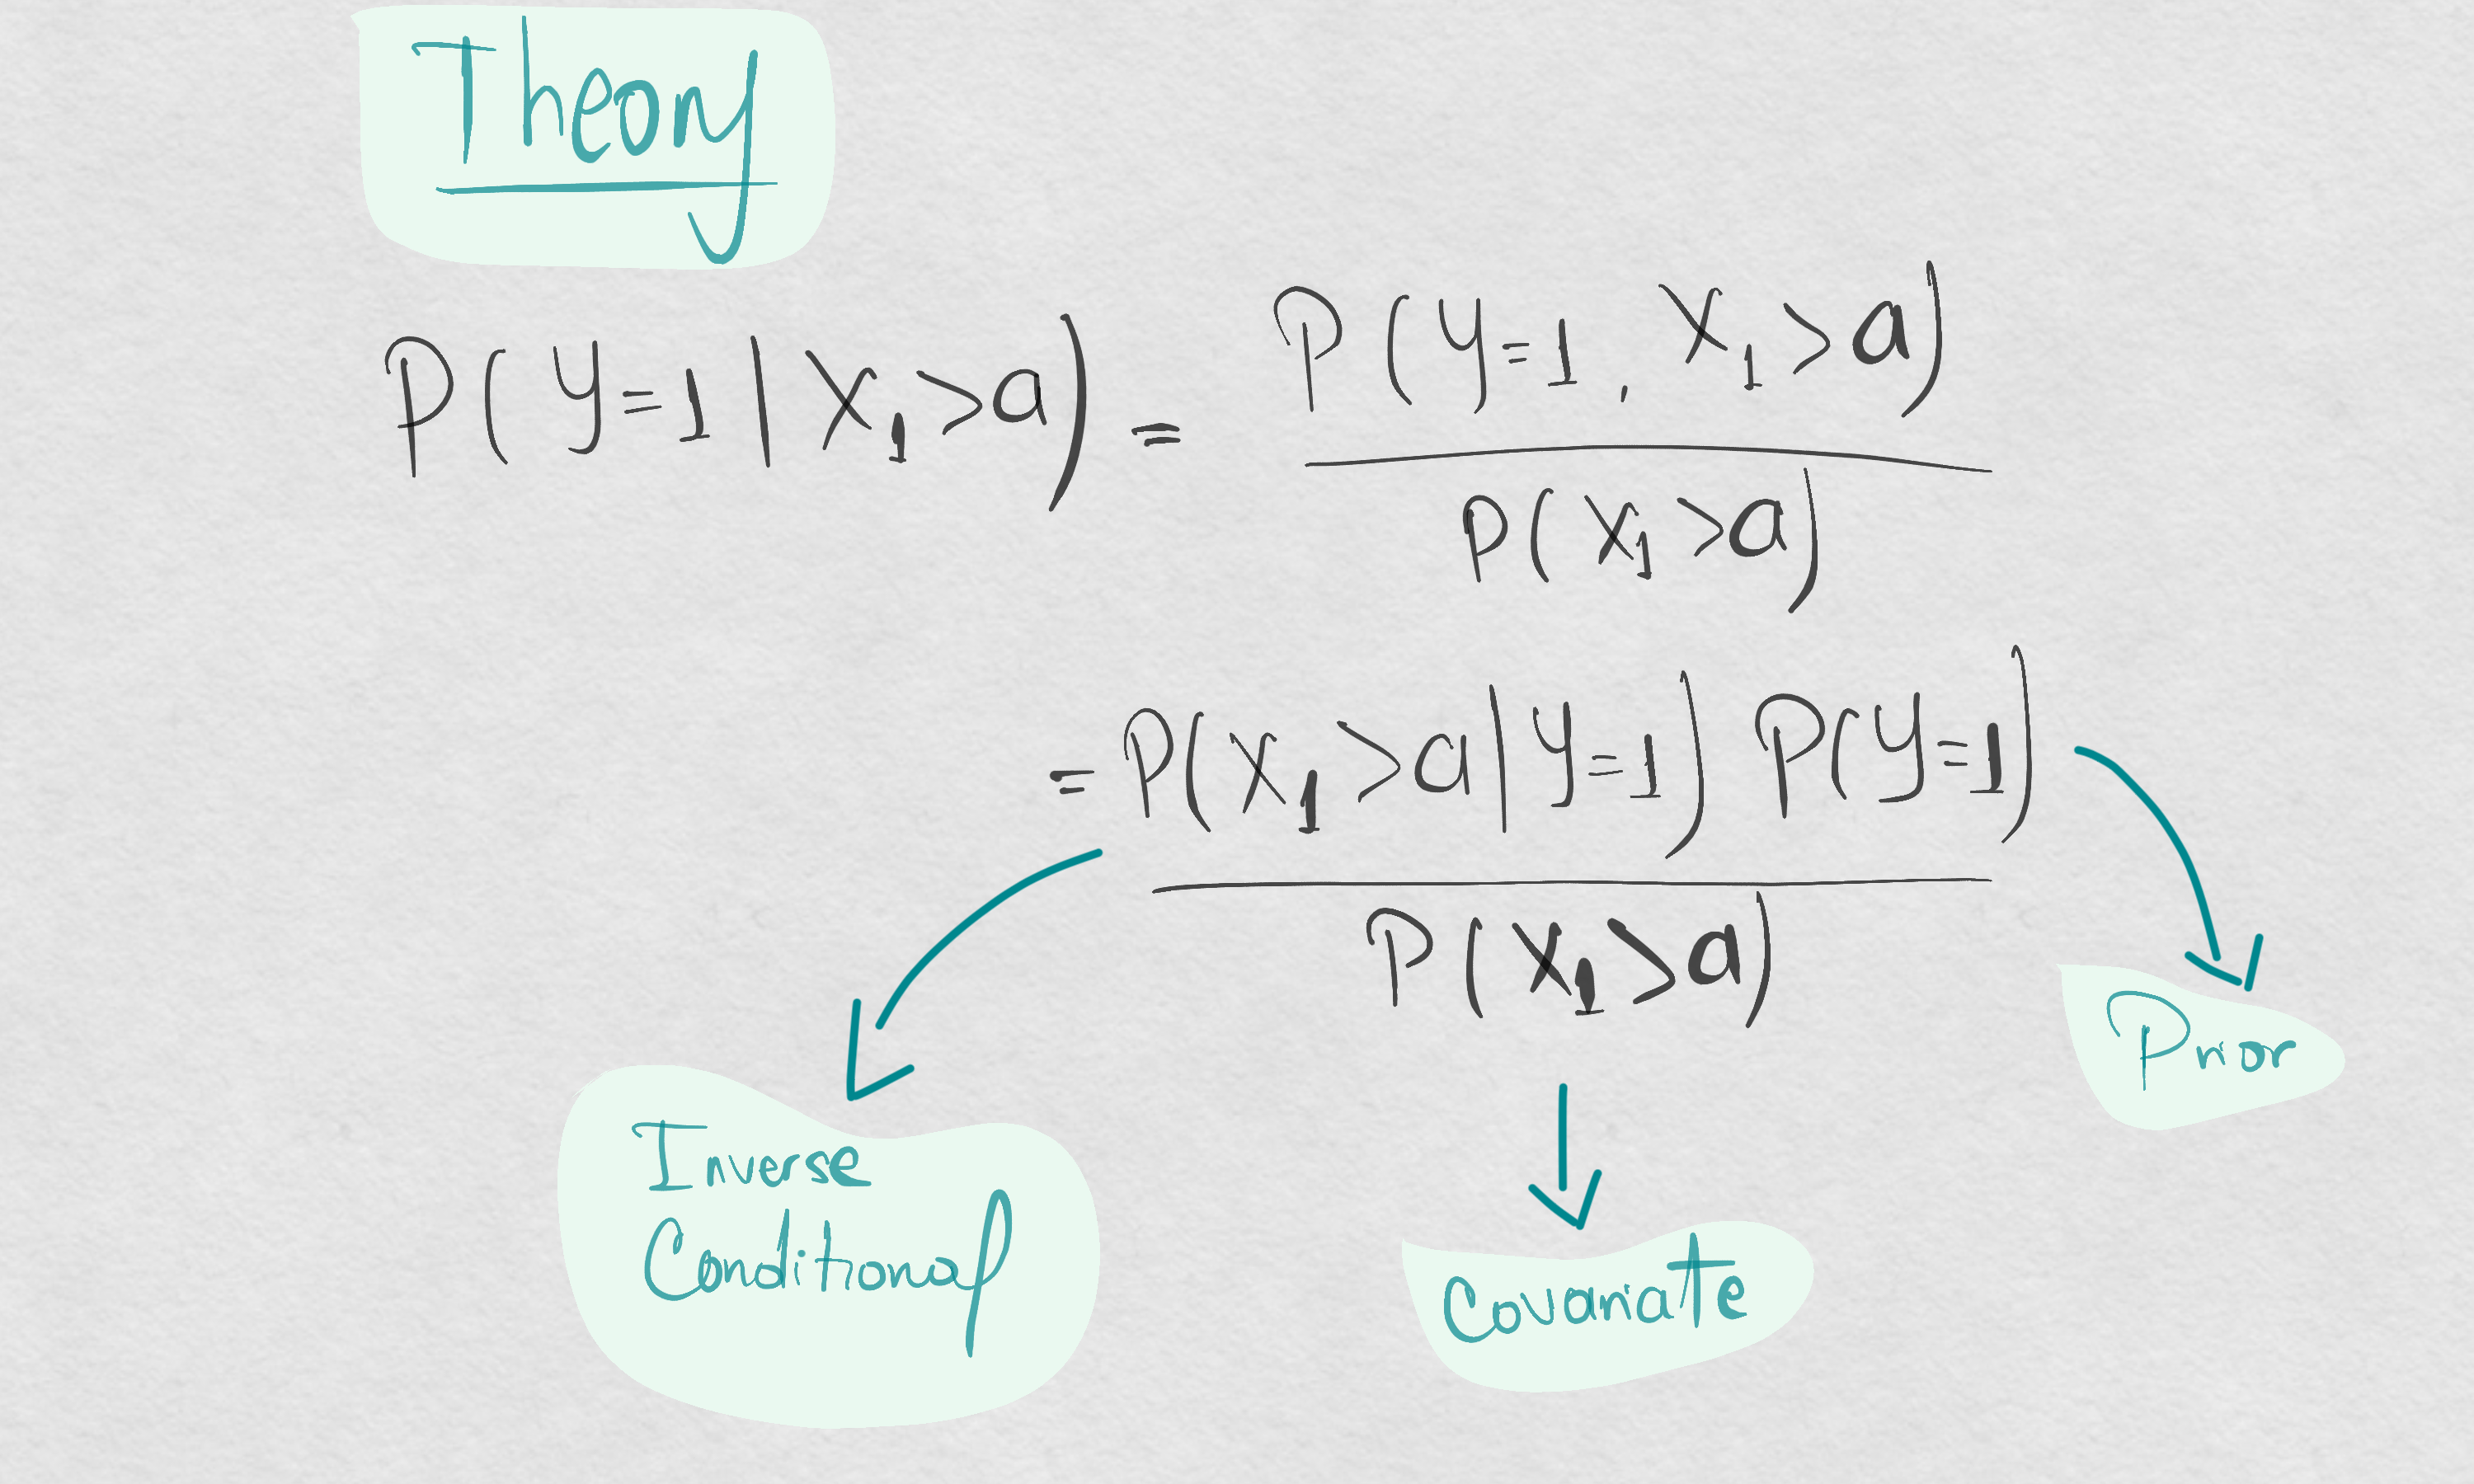 Theory
P(y=1 | X₁>a) = P(y=1, X₁>a) / P(X₁>a)
= P(X₁>a | y=1) P(y=1) / P(X₁>a)
Prior
Inverse
Conditional
Covariate